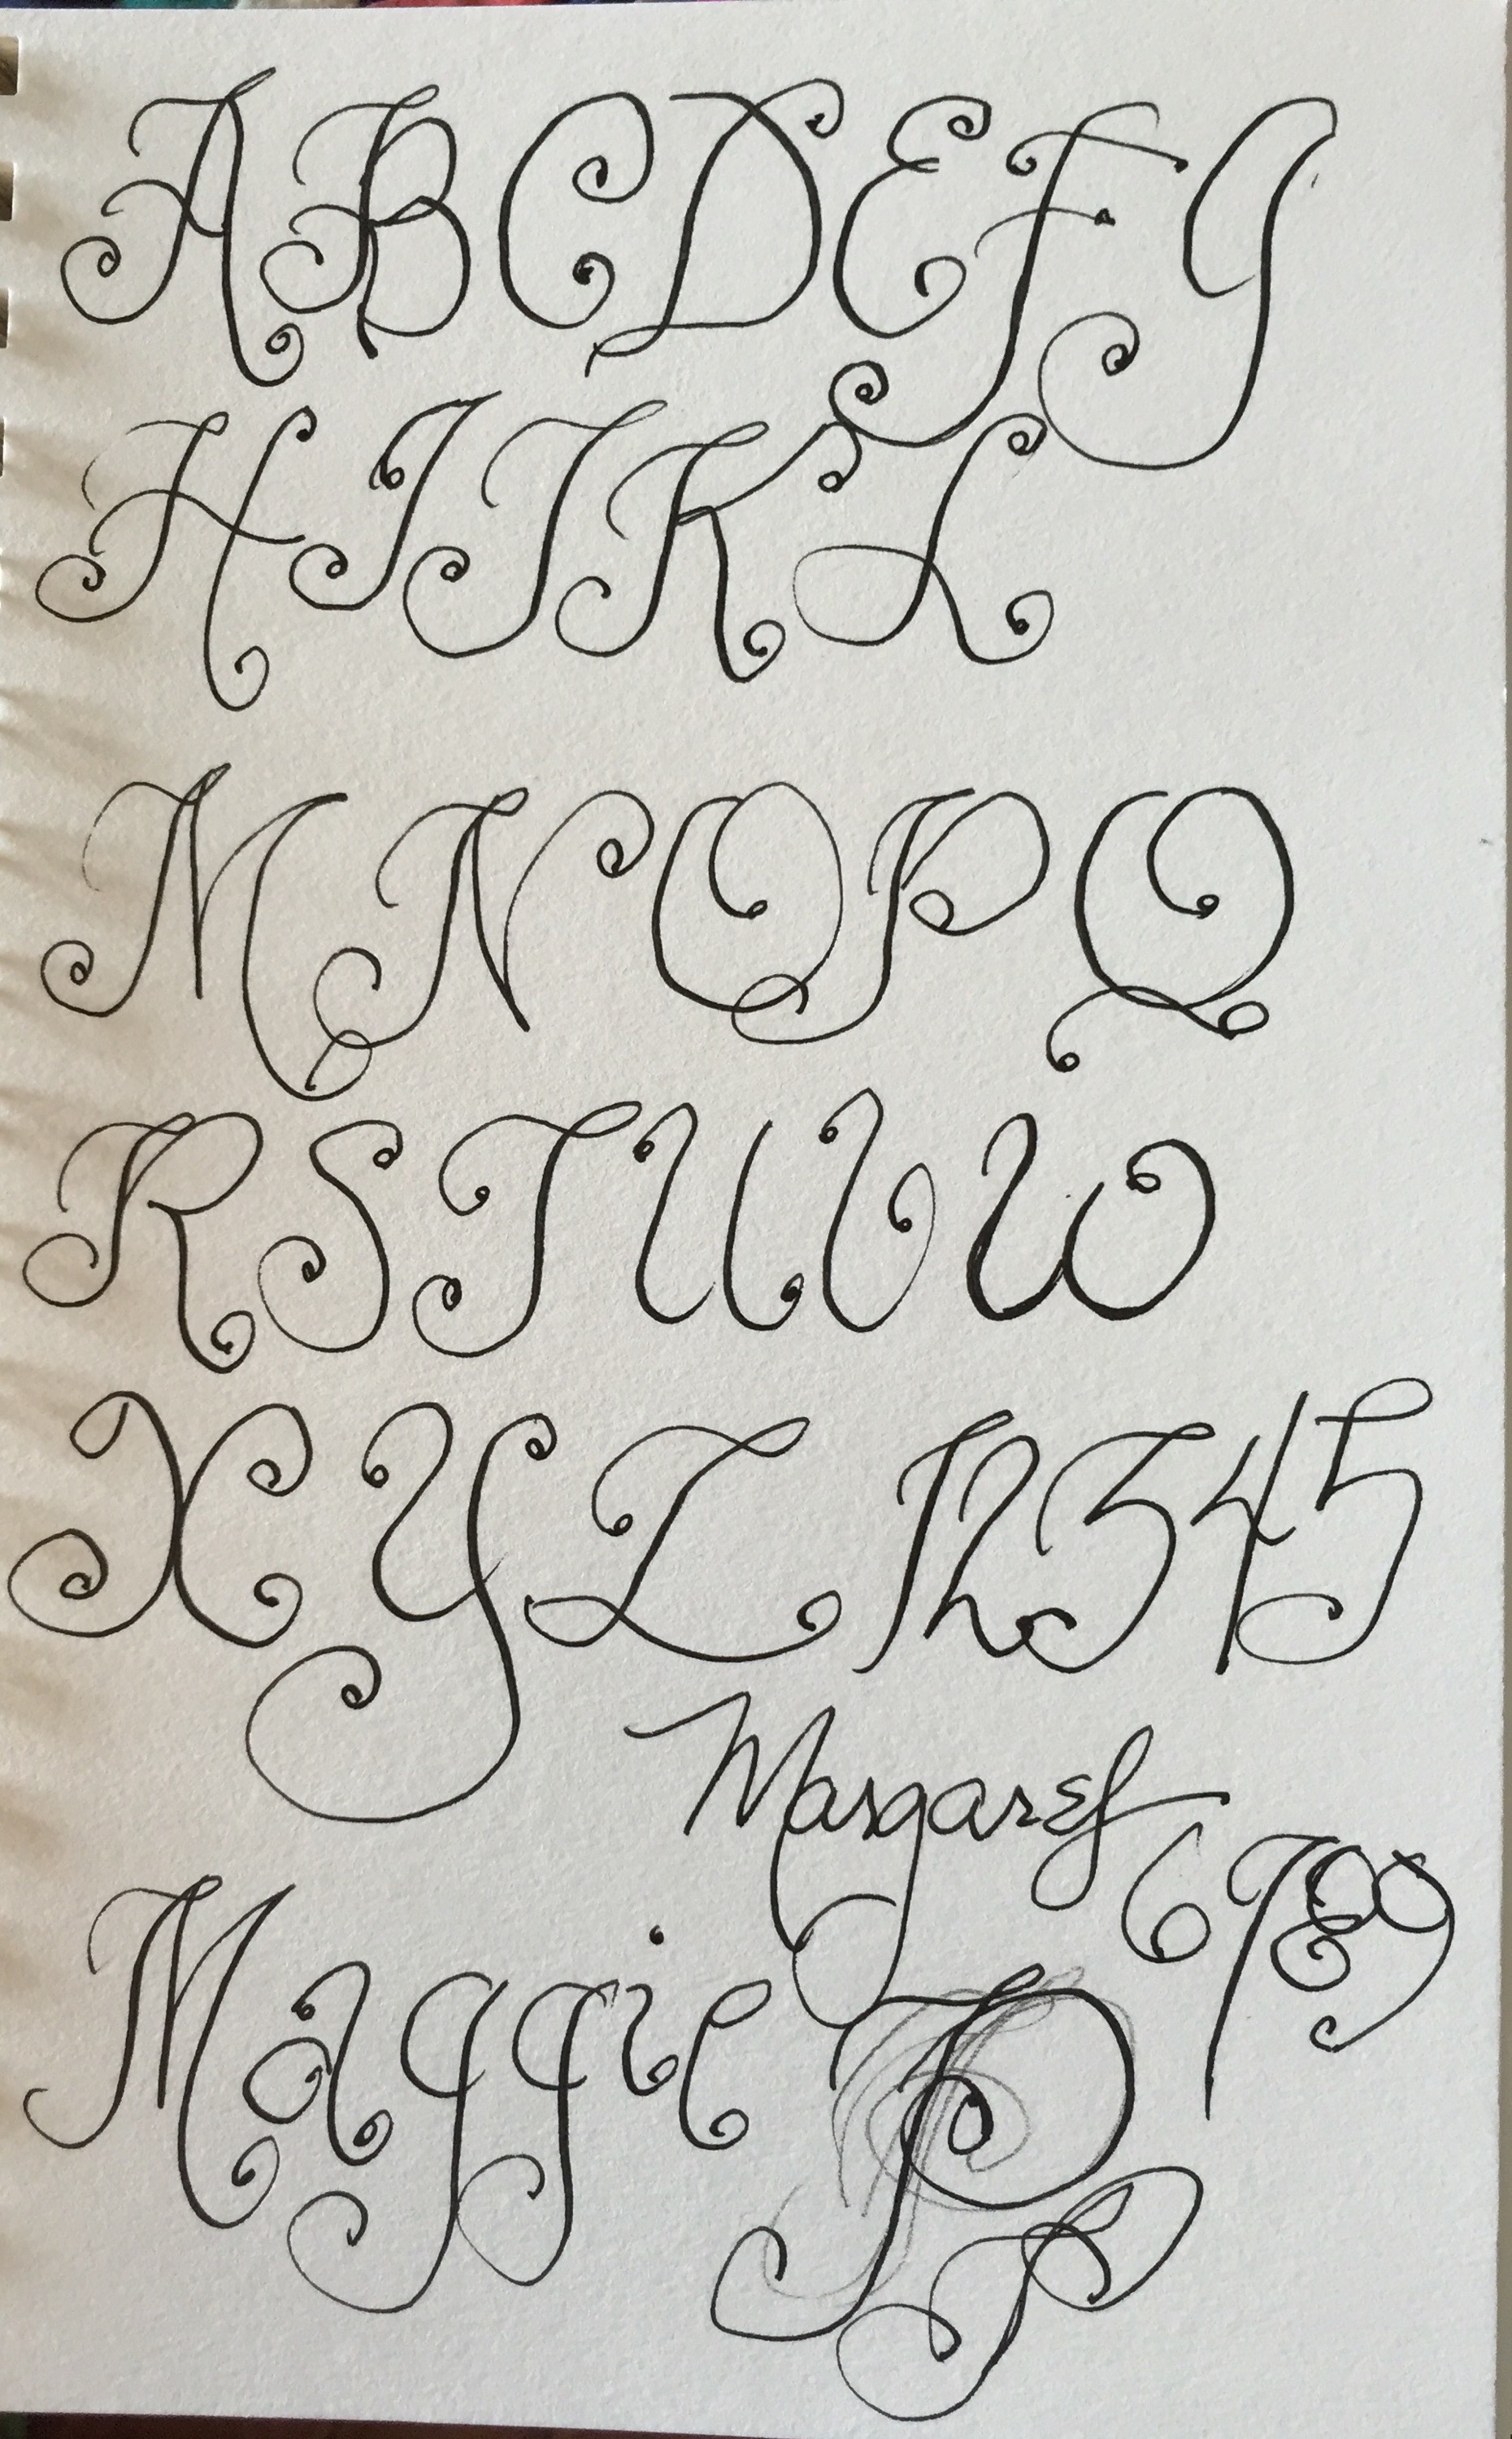 A B C D E F G
H I J K L
M N O P Q
R S T U V W
X Y Z 1 2 3 4 5
Margaret
6 7 8 9
Maggie P
P